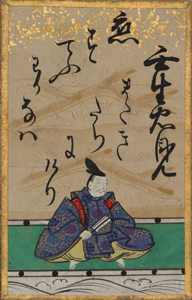 壬生忠見
恋
す
てふ
わか
なは
またき
たち
に
けり